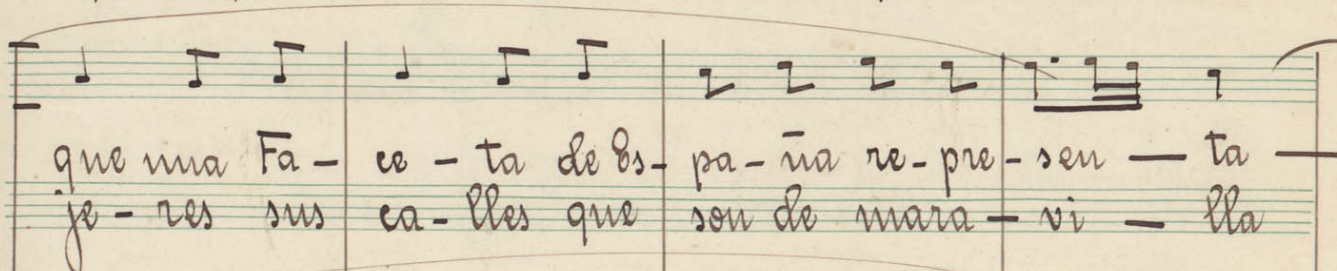 que una Fa - ce - ta de Es - pa - ña re - pre - sen — ta —
je - res sus ca - lles que son de mara - vi — lla